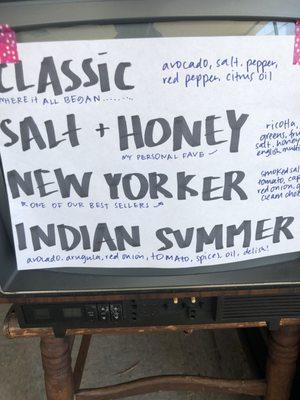 CLASSIC
WHERE IT ALL BEGAN........
avocado, salt, pepper,
red pepper, citrus oil
SALT + HONEY
MY PERSONAL FAVE
ricotta,
greens,
salt, honey
english
NEW YORKER
ONE OF OUR BEST SELLERS
smoked
tomato,
red onion,
cream
INDIAN SUMMER
avocado, arugula, red onion, tomato, spices, oil, delish!